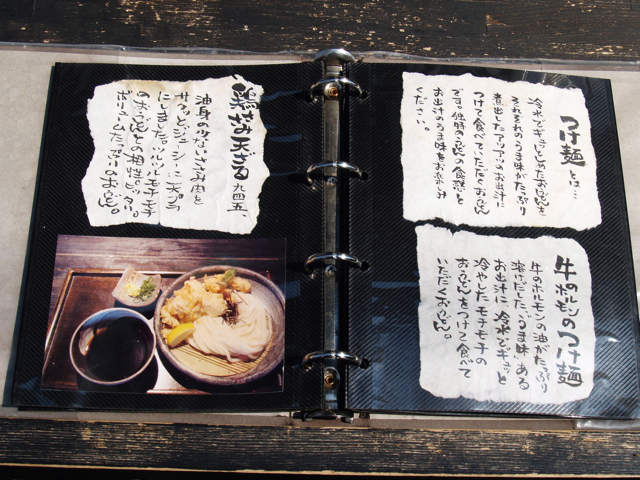 つけ麺とは…
冷水でギュッとしめたおうどんを
それぞれのうま味がたっぷり
煮出したアツアツのお出汁に
つけて食べていただくおうどん
です。独特のうどんの食感と
お出汁のうま味をお楽しみ
ください。
牛のホルモンのつけ麺
牛のホルモンの油がたっぷり
溶けだした、うま味ある
お出汁に、冷水でギュッと
冷やしたモチモチの
おうどんをつけて食べて
いただくおうどん。
鶏ささ天ざる 九四五、
油身の少ないささみ肉を
サクッとジューシーに天ぷら
にしました。ツルツルモチモチ
のおうどんとの相性ピッタリ。
ボリュームたっぷりのおうどん。